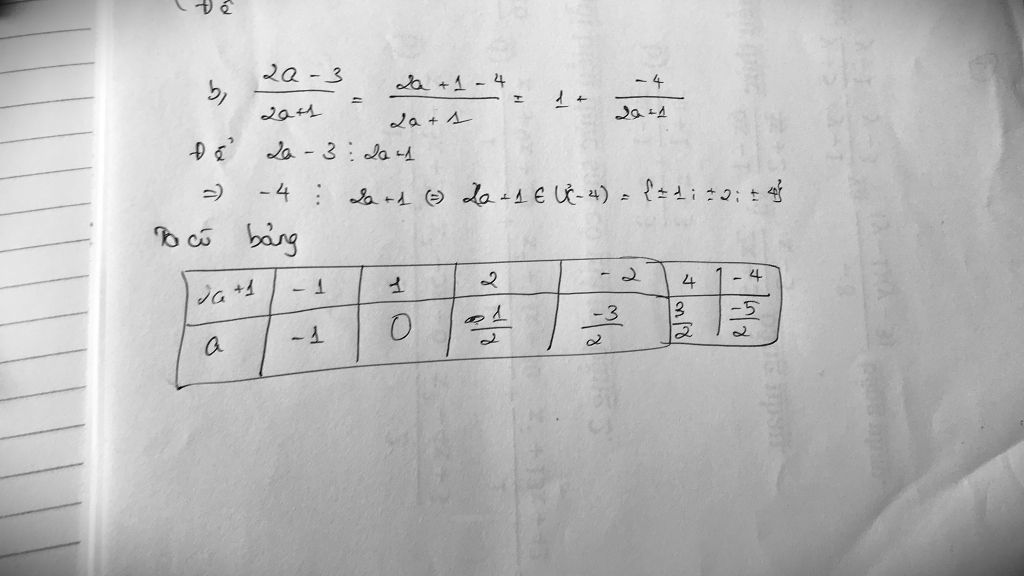 (Để
b, 2a - 3 / 2a+1 = 2a + 1 - 4 / 2a + 1 = 1 + -4 / 2a+1
Để 2a - 3 ⋮ 2a+1
=> -4 ⋮ 2a+1 <=> 2a+1 ∈ Ư(-4) = {±1; ±2; ±4}
Ta có bảng
2a+1 -1 1 2 -2 4 -4
a -1 0 1/2 -3/2 3/2 -5/2